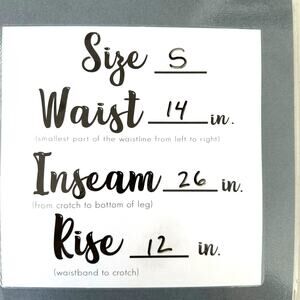 Size S
Waist 14 in.
(smallest part of the waistline from left to right)
Inseam 26 in.
(from crotch to bottom of leg)
Rise 12 in.
(waistband to crotch)